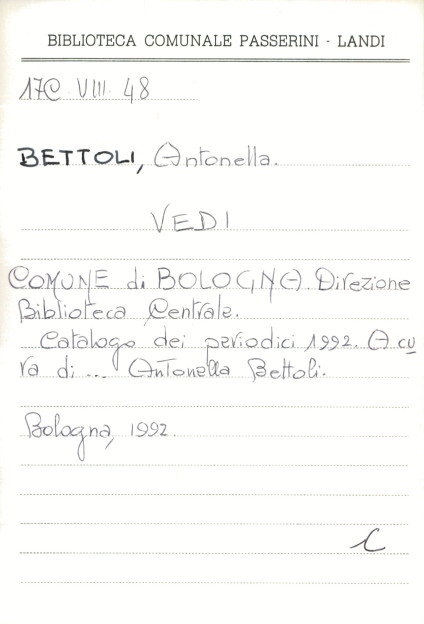 BIBLIOTECA COMUNALE PASSERINI - LANDI
17C VIII 48
BETTOLI, Antonella.
VEDI
COMUNE di BOLOGNA. Direzione
Biblioteca Centrale.
Catalogo dei periodici 1992. A cu
ra di ... Antonella Bettoli.
Bologna, 1992.
C